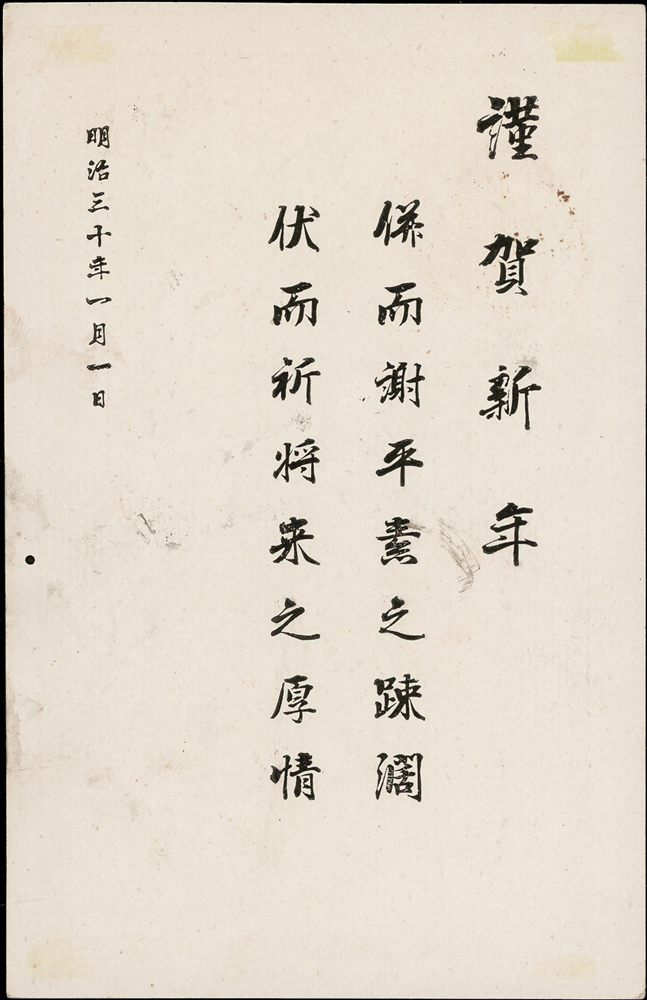 謹賀新年
併而謝平素之疎濶
伏而祈将来之厚情
明治三十年一月一日